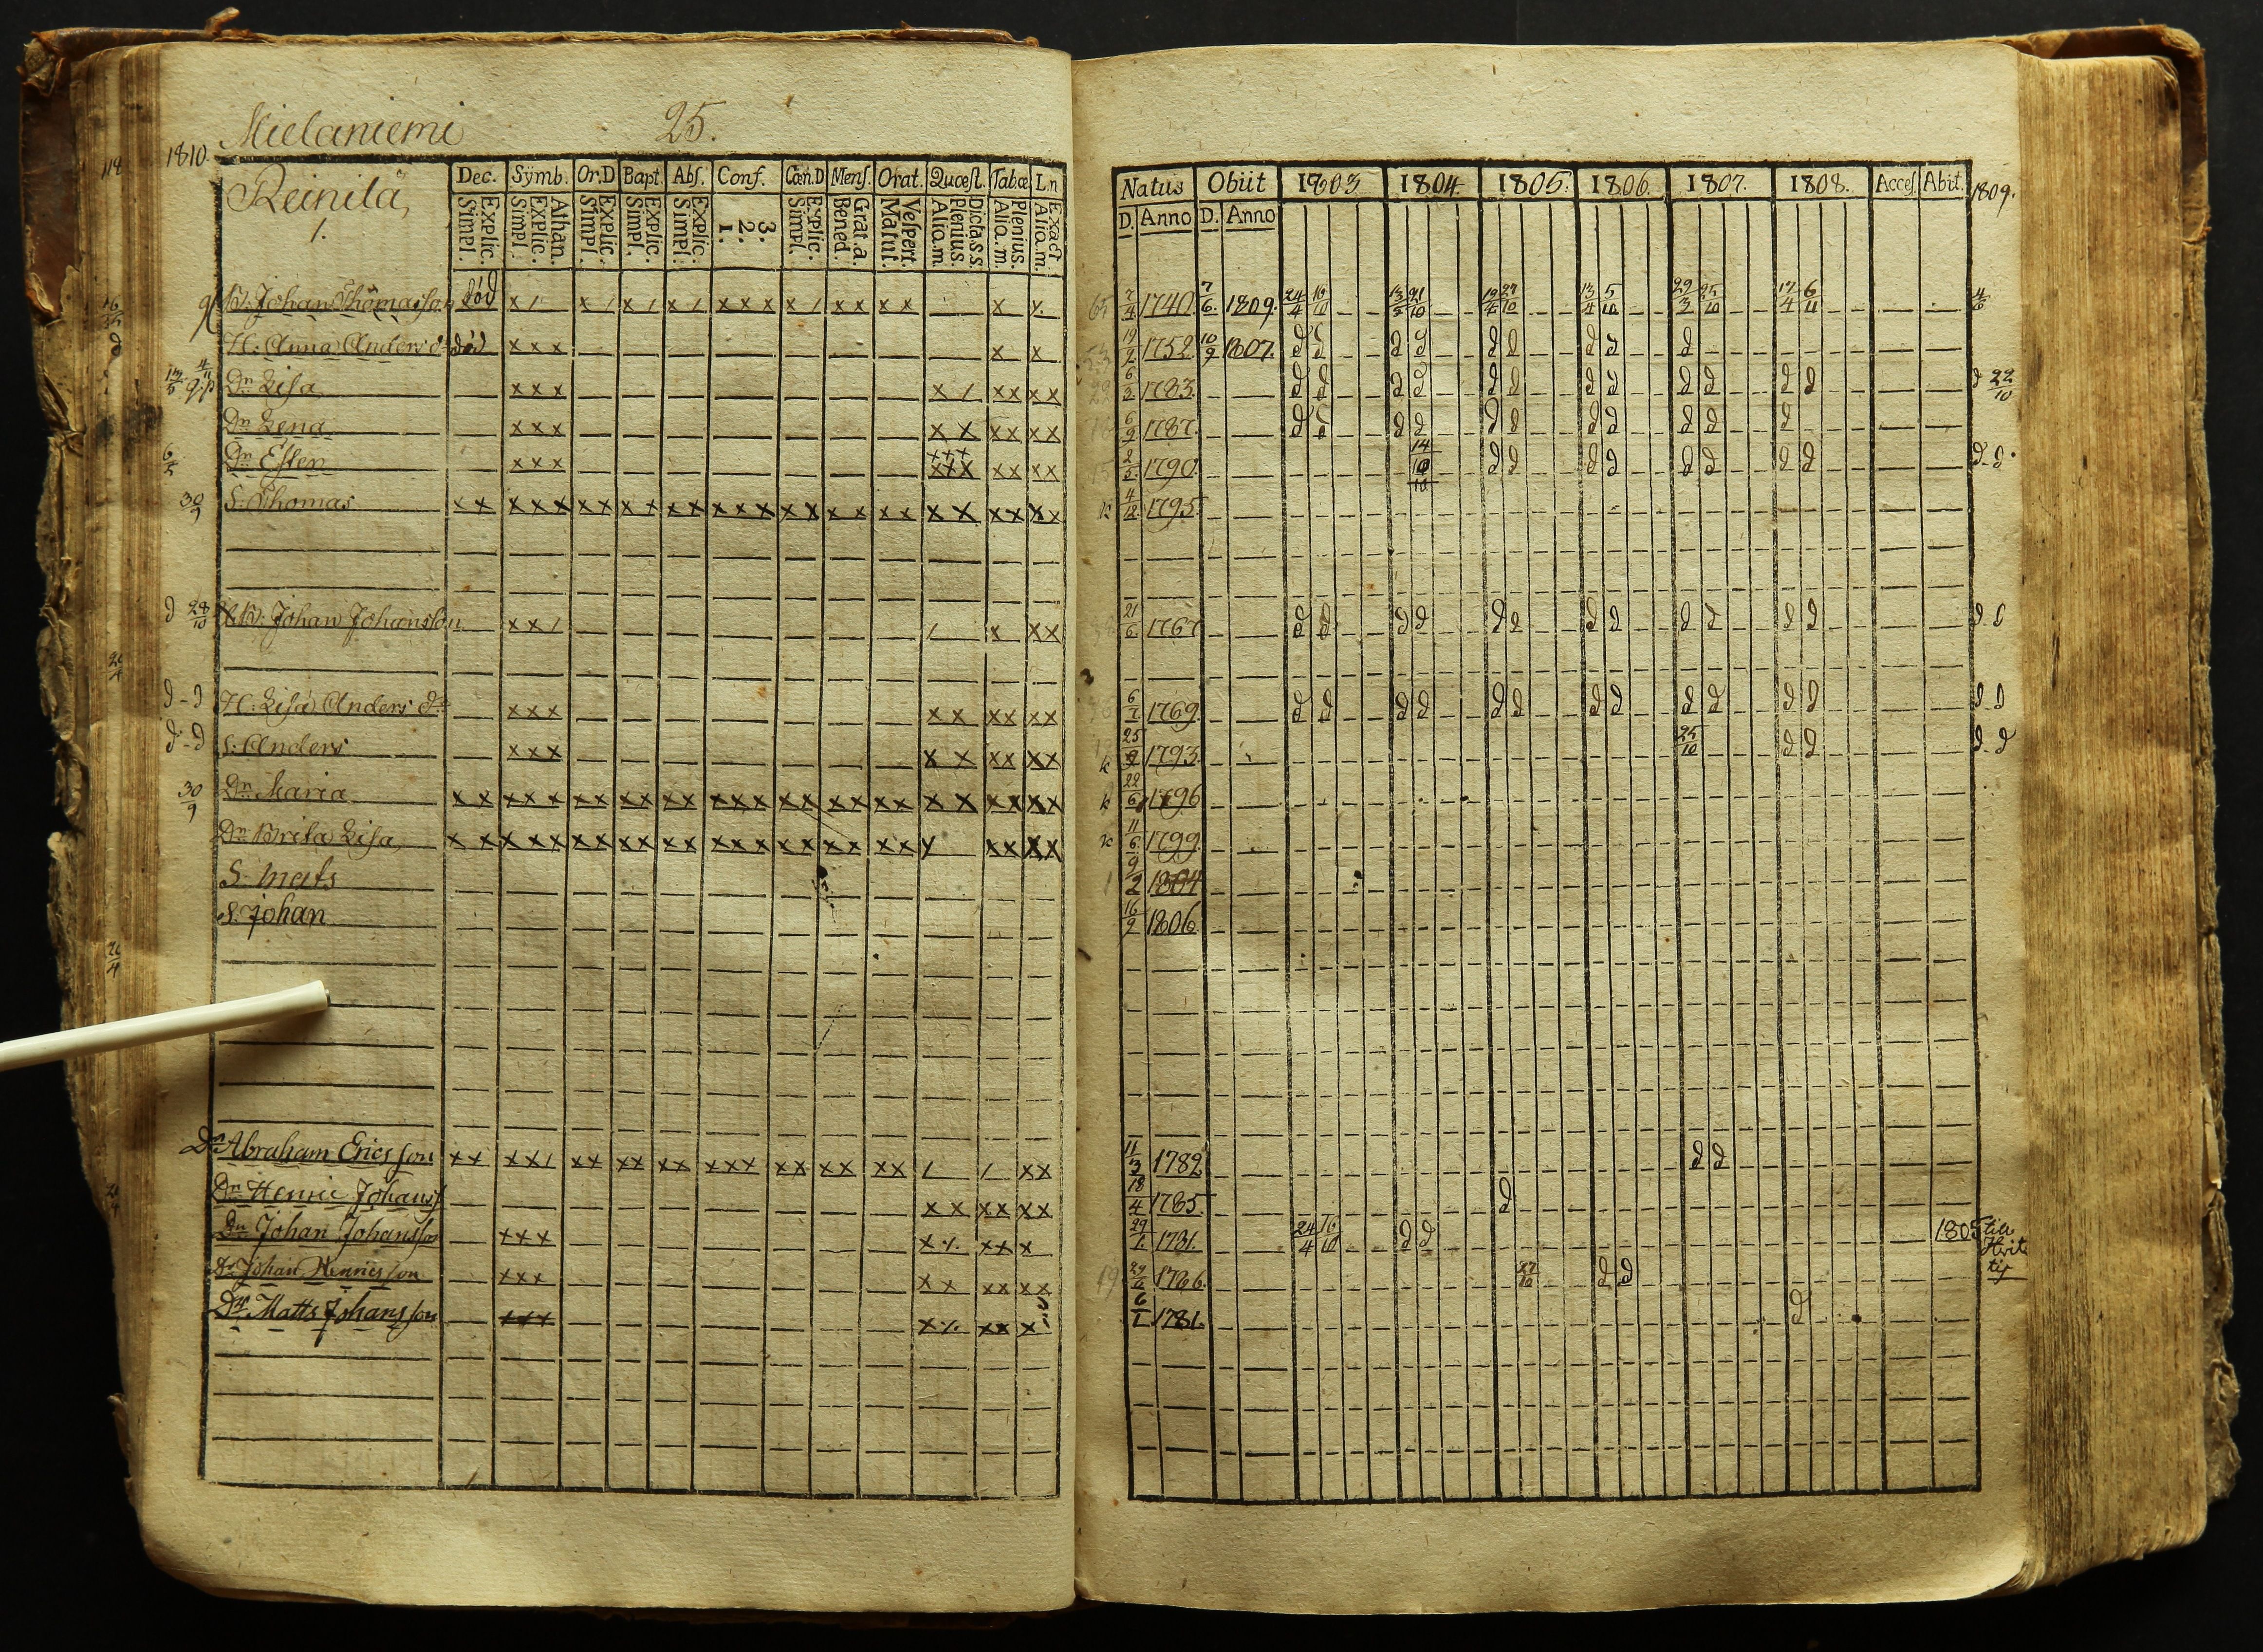 Mielaniemi 25.
1810.
Reinilä,
1.
Dec. Symb. Or.D Bapt. Abs. Conf. Cœn.D Mens. Orat. Quœst. Tabœ L.n
Explic. Simpl. Athan. Explic. Simpl. Explic. Simpl. Explic. Simpl. Explic. Simpl. 3. 2. 1. Explic. Simpl. Grat.a. Bened. Vespert. Matut. Dicta.s.s. Plenius. Alio.m. Plenius. Alio.m. Exact Alio.m.
B: Johan Thomasson död x / x / x / x / x x x x / x x x x x x
H: Anna Anders dr död x x x x x
Dr Lisa x x x x / x x x x
Dr Lena x x x x x x x x x
Dr Ester x x x x x x x x x x
S. Thomas x x x x x x x x x x x x x x x x x x x x x x x x x x
Johan Johansson x x / / x x x
H: Lisa Anders dr x x x x x x x x x
S: Anders x x x x x x x x x
Dr Maria x x x x x x x x x x x x x x x x x x x x x x x x x x
Dr Brita Lisa x x x x x x x x x x x x x x x x x x x x x x x x x
S. Mats
S. Johan
Dr Abraham Ericsson x x x x / x x x x x x x x x x x x x x x x / / x x
Dr Henric Johanss x x x x x x
Dr Johan Johansson x x x x x x x
Dr Johan Henricsson x x x x x x x x x
Dr Matts Johansson x x x x x x x
Natus Obiit 1803 1804. 1805. 1806. 1807. 1808. Acces. Abit. 1809.
D. Anno D. Anno
7/4 1740. 7/6. 1809. 24/4 16/10 13/4 5/10 29/3 25/10 17/4 6/11
19/2 1752. 10/9 1807.
1783. 22/10
6/9 1787.
1790. 14/10
4/12 1795
21/6 1767
1769
25 1793. 25/10
1796
11/6 1799
9/2 1804
16/9 1806
11/3 1782
18/4 1785
29/1. 1781. 24/4 16/10 1805 till Hvit
1786. 27/10
6/1 1781.